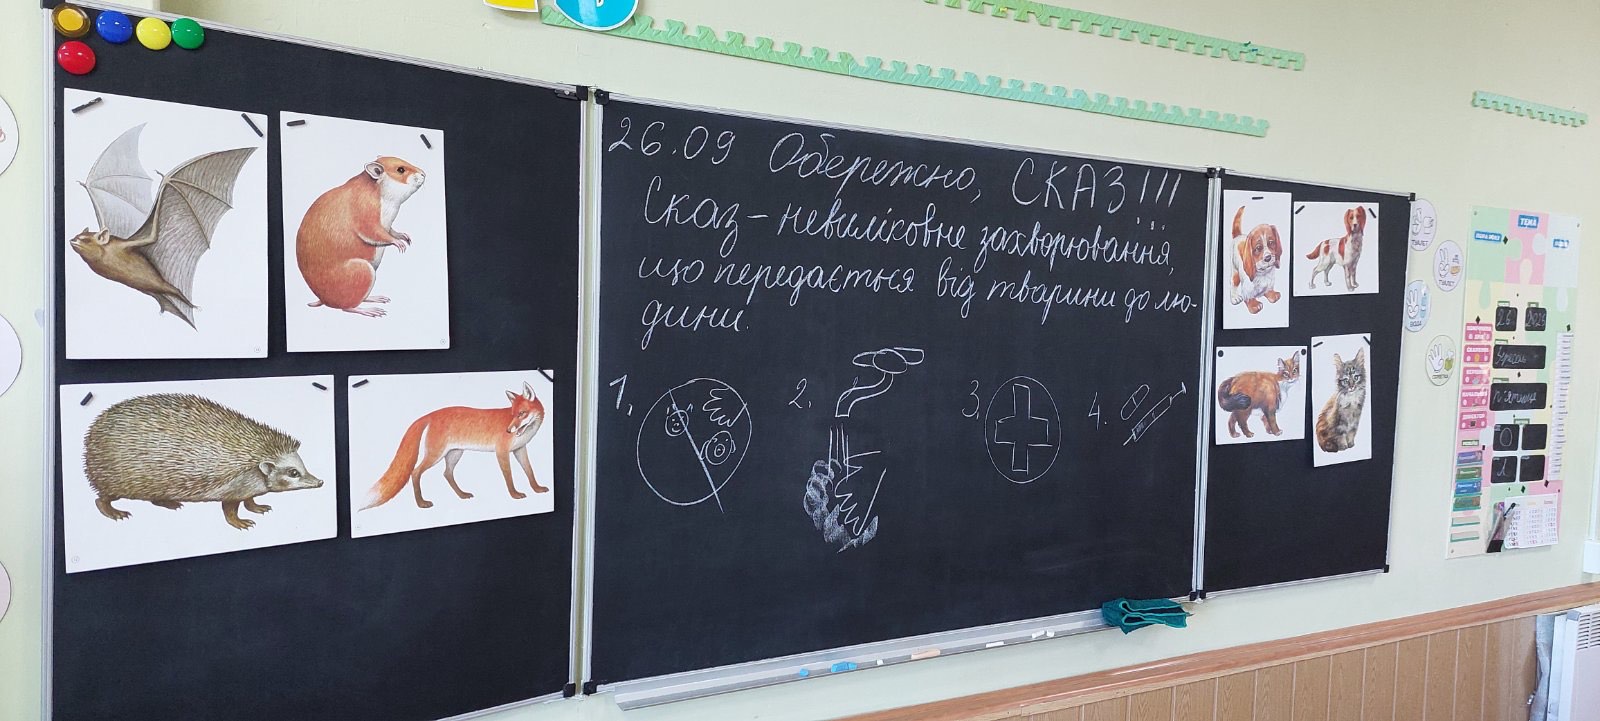 26.09 Обережно, СКАЗ!!!
Сказ – невиліковне захворювання,
що передається від тварини до лю-
дини.
1.
2.
3.
4.
ТЕМА
26
2025
п'ятниця